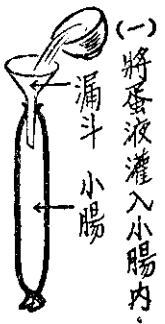 (一)將蛋液灌入小腸內。
漏斗
小腸